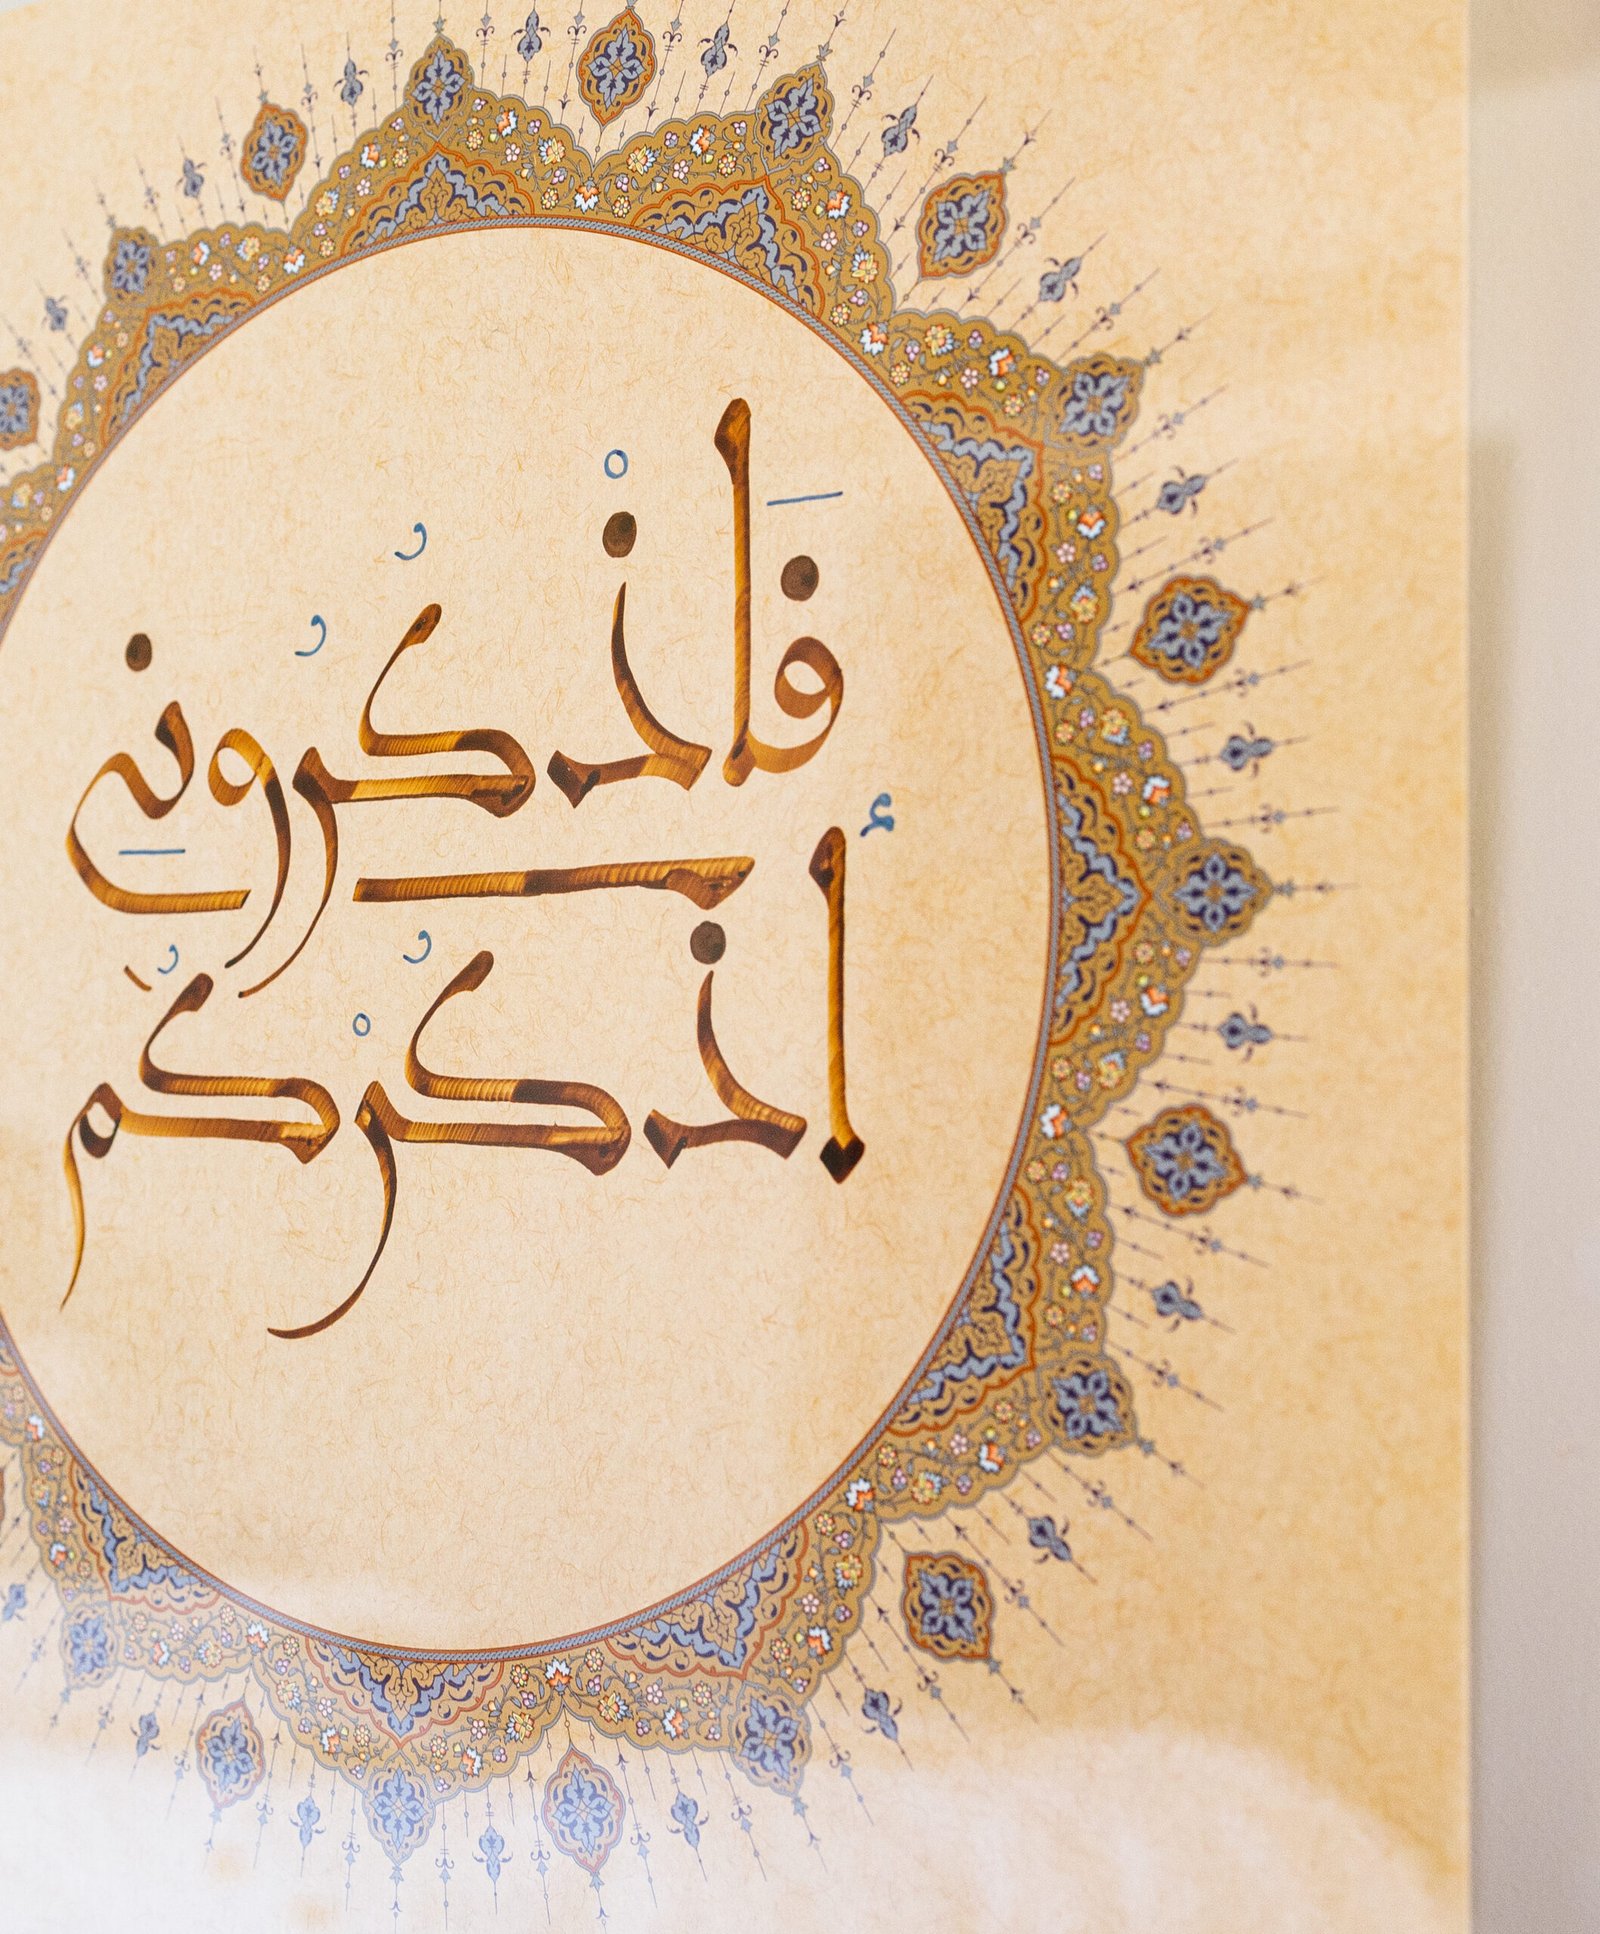 فَاذْكُرُونِي
أذكُرْكُم